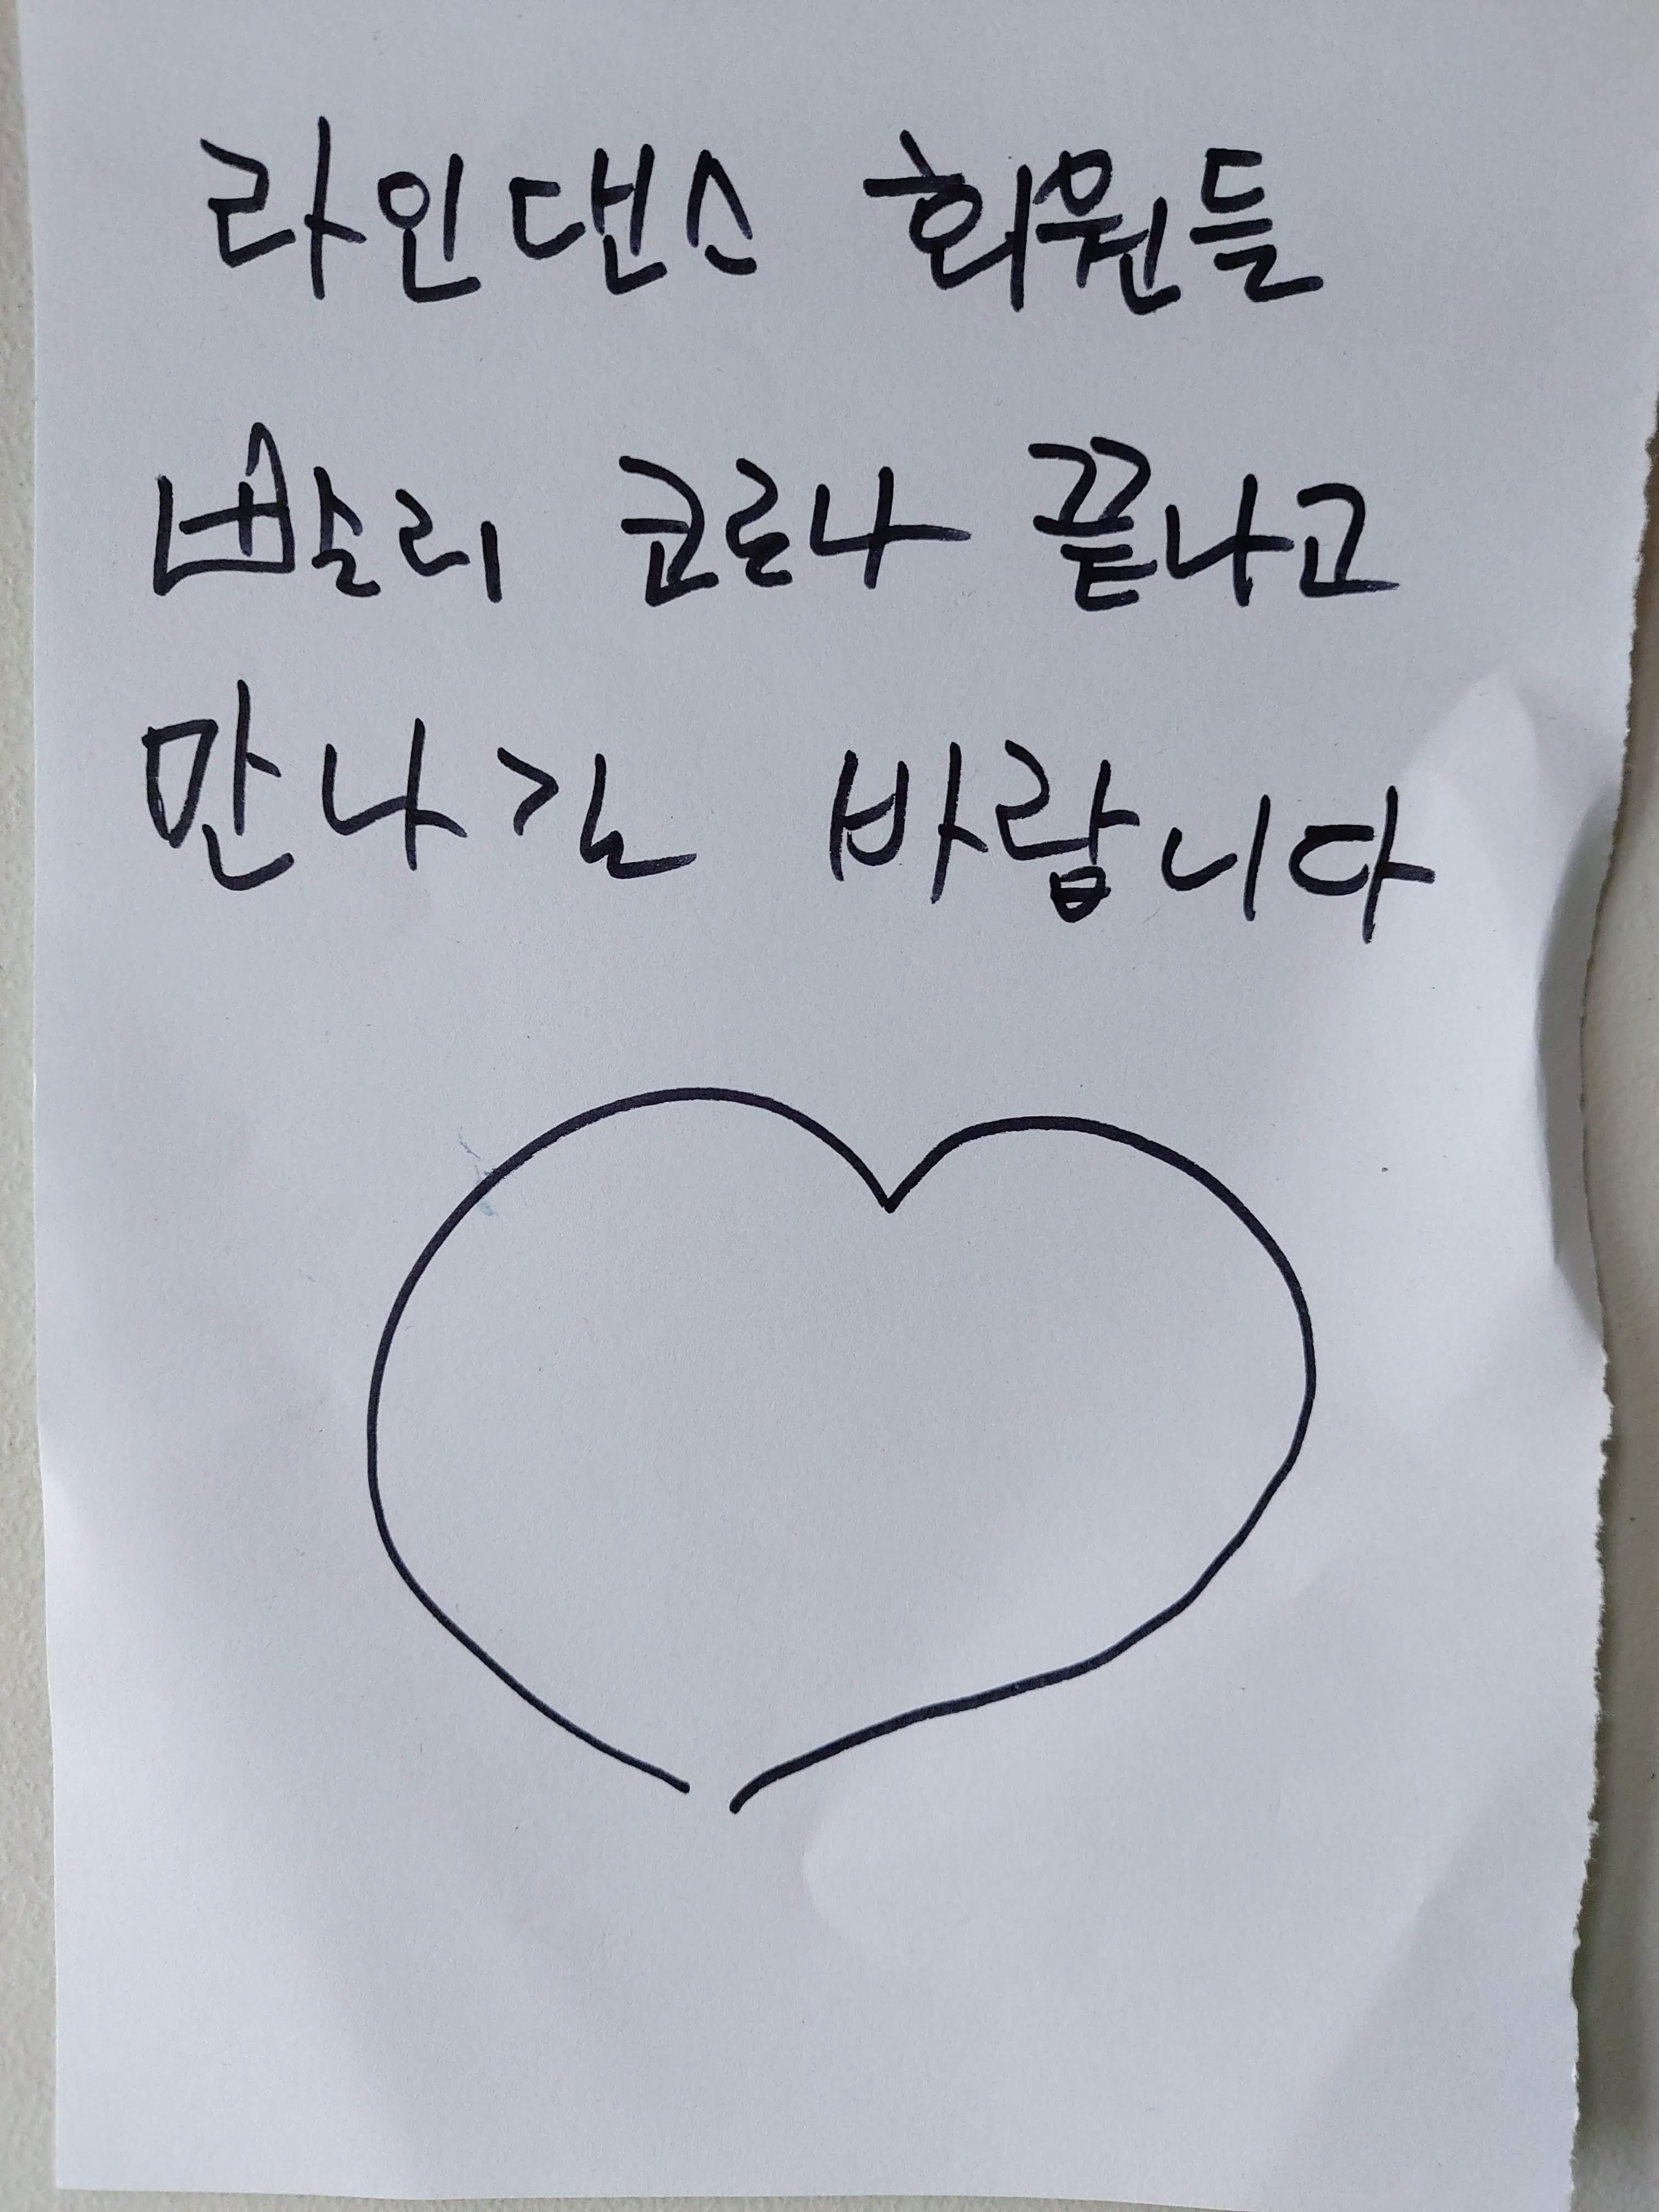 라인댄스 회원들
빨리 코로나 끝나고
만나길 바랍니다